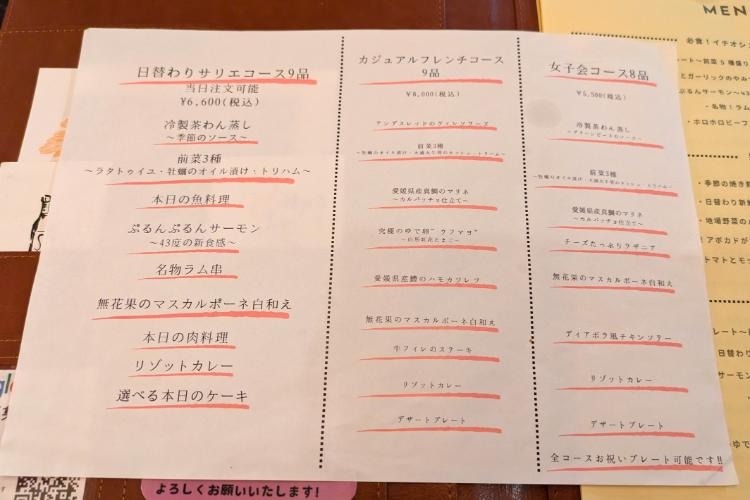 日替わりサリエコース9品
当日注文可能
¥6,600(税込)
冷製茶わん蒸し
〜季節のソース〜
前菜3種
〜ラタトゥイユ・牡蠣のオイル漬け・トリハム〜
本日の魚料理
ぷるんぷるんサーモン
〜43度の新食感〜
名物ラム串
無花果のマスカルポーネ白和え
本日の肉料理
リゾットカレー
選べる本日のケーキ
カジュアルフレンチコース
9品
¥8,000(税込)
前菜3種
愛媛県産真鯛のマリネ
〜カルパッチョ仕立て〜
究極のゆで卵"ウフマヨ"
愛媛県産鱧のハモカツレツ
無花果のマスカルポーネ白和え
牛フィレのステーキ
リゾットカレー
デザートプレート
女子会コース8品
¥5,500(税込)
冷製茶わん蒸し
〜グリーンピースのソース〜
前菜3種
愛媛県産真鯛のマリネ
〜カルパッチョ仕立て〜
チーズたっぷりラザニア
無花果のマスカルポーネ白和え
ディアボラ風チキンソテー
リゾットカレー
デザートプレート
全コースお祝いプレート可能です!!
MEN
必食!イチオシ
とガーリックのやみ
ぷるんサーモン〜43
・名物!ラム
・ホロホロビーフ
・季節の焼き野
・日替わり新鮮
・地場野菜の
!アボカドが
トマトとモッ
・日替わ
・サーモン
・ゆで
よろしくお願いいたします!